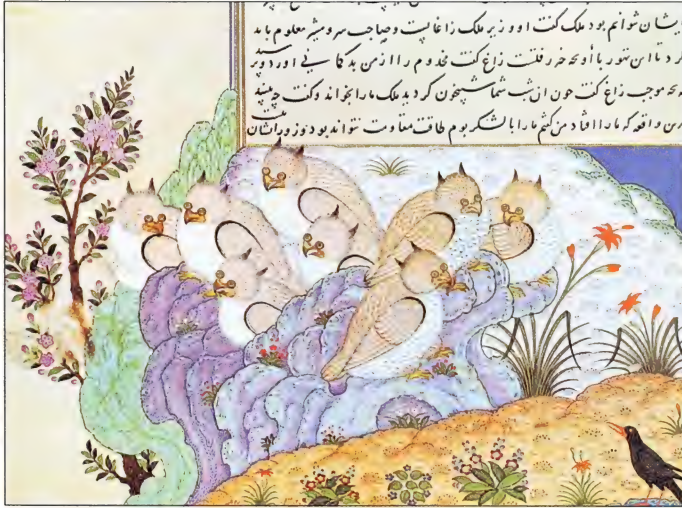 یشان شوانم بود ملک کفت او وزیر ملک زاغانست و صاحب سر و مشیر معلوم باید
کرد تا این تهور با او بچه خرد رفتست زاغ کفت مخدوم را از من بد کمانی اورد و پر
بچه موجب زاغ کفت چون ان شب شما شبیخون کردید ملک ما را بخواند و کفت چه بینید
این واقعه که ما را افتاد من کفتم ما را با لشکر بوم طاقت مقاومت نتواند بود